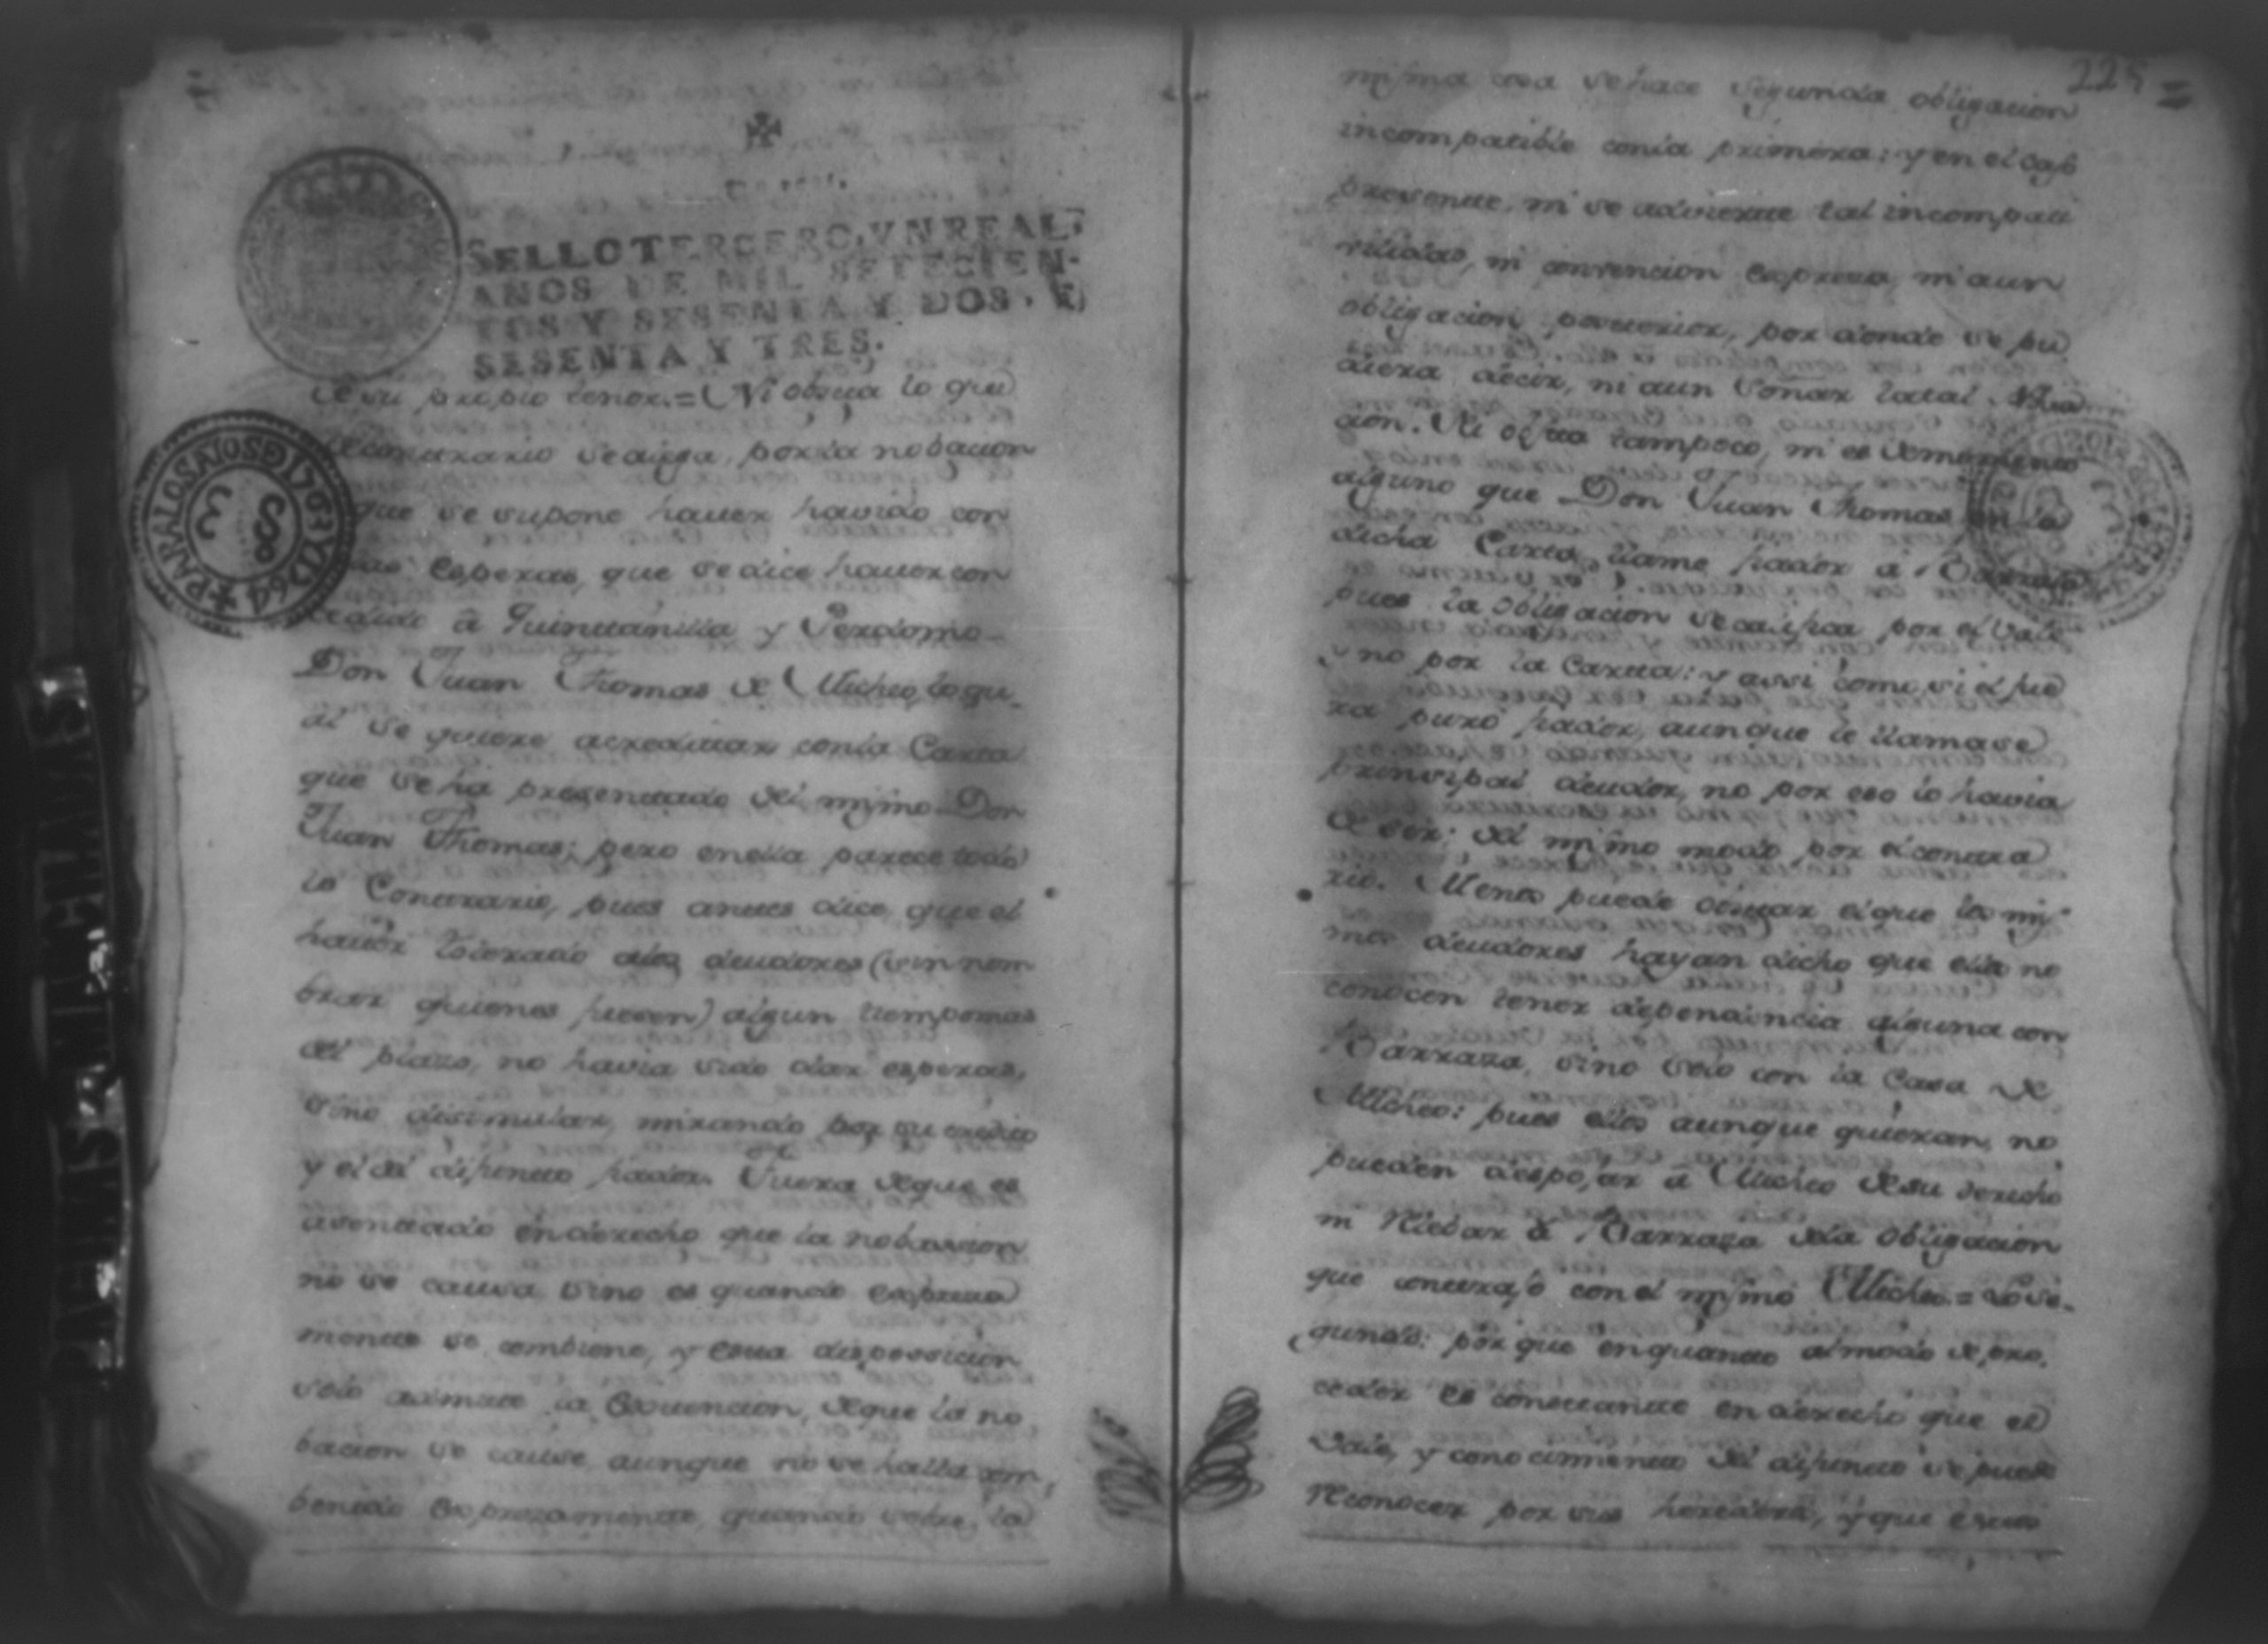 SELLO TERCERO, VN REAL,
AÑOS DE MIL SETECIEN-
TOS Y SESENTA Y DOS, Y
SESENTA Y TRES.
PARA LOS AÑOS DI 1763 Y 1764
de su propio tenor.= Ni obsta lo que
de contrario se alega, por la nobacion
que se supone hauer havido con
las esperas, que se dice hauer con
cedido â Quintanilla y Perdomo
Don Juan Thomas de Micheo, lo qu-
al se quiere acreditar con la Carta
que se ha presentado del mismo Don
Juan Thomas; pero en ella parece todo
lo Contrario, pues antes dice, que el
hauer tolerado a los deudores (sin nom
brar quienes fuesen) algun tiempo mas
del plazo, no havia sido dar esperas,
sino disimular, mirando por su credito
y el del difunto fiador. Fuera de que es
asentado en derecho que la nobassion
no se causa sino es quando expresa
mente se combiene, y esta disposicion
solo admite la Excencion, de que la no
bacion se cause aunque no se halla com
benido Exprezamente, quando sobre la
225
misma cosa se hace segunda obligacion
incompatible con la primera: y en el caso
presente, ni se advierte tal incompati
vilidad, ni convencion expresa, ni aun
obligacion posterior, por donde se pu
diera decir, ni aun soñar la tal Noba
cion. Ni obsta tampoco, ni es de momento
alguno que Don Juan Thomas en la
dicha Carta, llame fiador â Barraza
pues la obligacion se califica por el Vale
y no por la Carta: y assi como, si el fue
ra puro fiador, aunque le llamase
prinsipal deudor, no por eso lo havia
de ser; del mismo modo por el contra
rio. Menos puede obstar el que los mis
mos deudores hayan dicho que ellos no
conocen tener dependencia alguna con
Barraza, sino solo con la Casa de
Micheo: pues ellos aunque quieran, no
pueden despojar â Micheo de su derecho
ni Relebar â Barraza de la obligacion
que contrajo con el mismo Micheo.= Lo se-
gundo: por que en quanto al modo de pro-
ceder es constante en derecho que el
Vale, y conocimiento del difunto se puede
Reconocer por sus herederos, y que estos